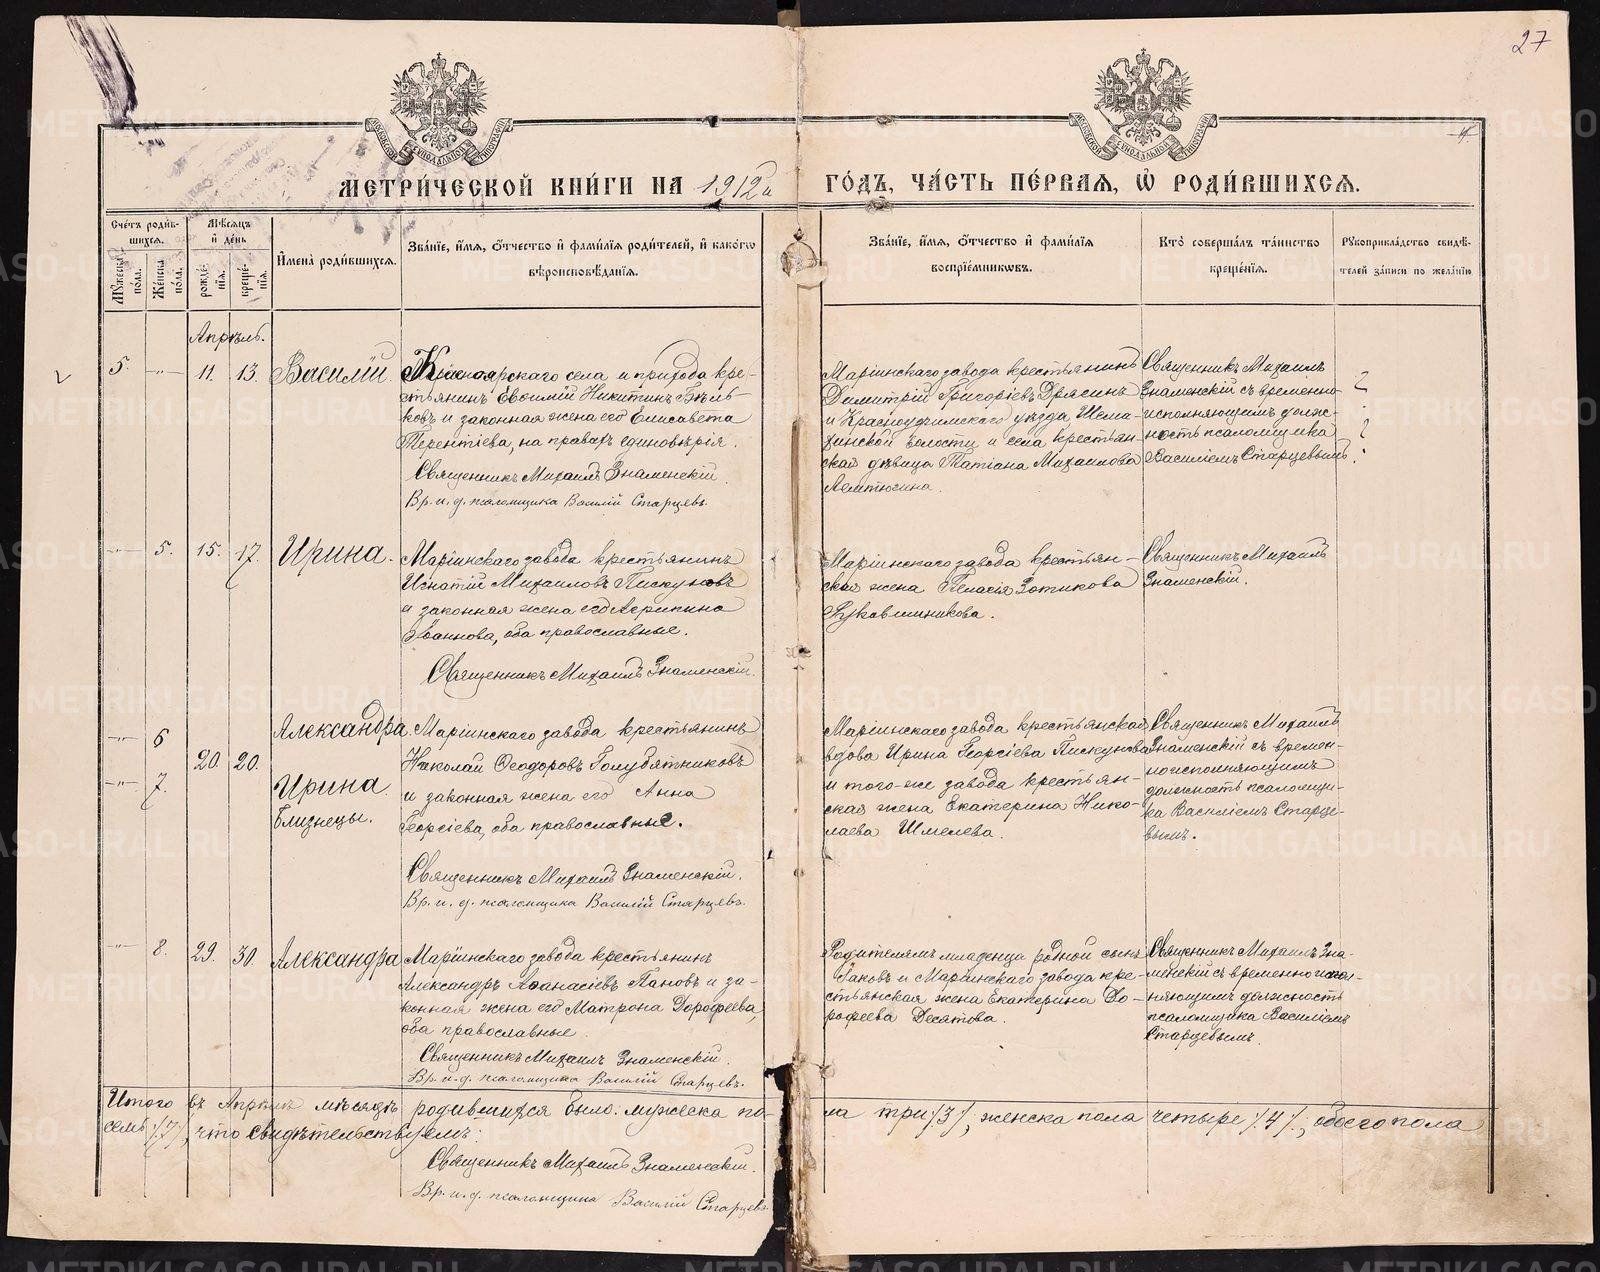 27
МЕТРИ́ЧЕСКОЙ КНИ́ГИ НА 1912й ГО́ДЪ, ЧА́СТЬ ПЕ́РВАѦ, Ѡ҆ РОДИ́ВШИХСѦ.
Сче́тъ роди́в-
шихсѧ.
Мꙋ́жеска
по́ла.
Же́нска
по́ла.
Мѣ́сѧцъ
и҆ де́нь
рожде́-
нїѧ.
креще́-
нїѧ.
И҆мена̀ роди́вшихсѧ.
Зва́нїе, и҆́мѧ, ѻ҆́тчество и҆ фами́лїѧ роди́телей, и҆ како́гѡ
вѣроисповѣ́данїѧ.
Зва́нїе, и҆́мѧ, ѻ҆́тчество и҆ фами́лїѧ
воспрїе́мникѡвъ.
Кто̀ соверша́лъ та́инство
креще́нїѧ.
Рꙋкоприкла́дство свидѣ́-
телей за́писи по жела́нїю
Апрѣль.
5. -"- 11. 13. Василій.
Красноярскаго села и прихода кре-
стьянинъ Евѳимій Никитинъ Бѣль-
ковъ и законная жена его Елисавета
Терентіева, на правахъ единовѣрія.
Священникъ Михаилъ Знаменскій.
Вр. и. д. псаломщика Василій Старцевъ.
Маріинскаго завода крестьянинъ
Димитрій Григоріевъ Дрясинъ
и Красноуфимскаго уѣзда, Шема-
хинской волости и села крестьян-
ская дѣвица Татіана Михаилова
Священникъ Михаилъ
Знаменскій съ временно-
исполняющимъ долж-
ность псаломщика
Василіемъ Старцевымъ.
-"- 5. 15. 17. Ирина.
Маріинскаго завода крестьянинъ
Игнатій Михаиловъ Пискуновъ
и законная жена его Агрипина
Іоаннова, оба православные.
Священникъ Михаилъ Знаменскій.
Маріинскаго завода крестьян-
ская жена Пелагія Зотикова
Рукавишникова.
Священникъ Михаилъ
Знаменскій.
-"- 6 Александра
20. 20.
-"- 7. Ирина
близнецы.
Маріинскаго завода крестьянинъ
Николай Ѳеодоровъ Голубятниковъ
и законная жена его Анна
Георгіева, оба православные.
Священникъ Михаилъ Знаменскій.
Вр. и. д. псаломщика Василій Старцевъ.
Маріинскаго завода крестьянская
вдова Ирина Георгіева Пискунова
и того-же завода крестьян-
ская жена Екатерина Нико-
лаева Шмелева.
Священникъ Михаилъ
Знаменскій съ времен-
ноисполняющимъ
должность псаломщи-
ка Василіемъ Старце-
вымъ.
-"- 8. 29. 30. Александра
Маріинскаго завода крестьянинъ
Александръ Аѳанасіевъ Пановъ и за-
конная жена его Матрона Дорофеева,
оба православные.
Священникъ Михаилъ Знаменскій.
Вр. и. д. псаломщика Василій Старцевъ.
Родителямъ младенца родной сынъ
Іаковъ и Маріинскаго завода кре-
стьянская жена Екатерина До-
рофеева Десятова.
Священникъ Михаилъ Зна-
менскій съ временно испол-
няющимъ должность
псаломщика Василіемъ
Старцевымъ.
Итого въ Апрѣлѣ мѣсяцѣ родившихся было: мужеска по-
ла три /3/, женска пола четыре /4/, обоего пола
семь /7/, что свидѣтельствуемъ:
Священникъ Михаилъ Знаменскій.
Вр. и. д. псаломщика Василій Старцевъ.
METRIKI.GASO-URAL.RU